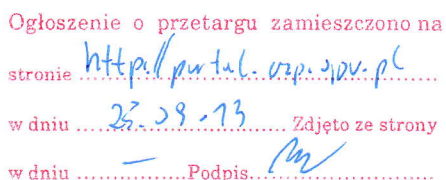 Ogłoszenie o przetargu zamieszczono na
stronie http://portal.uzp.gov.pl
w dniu .................... Zdjęto ze strony
w dniu ..... — .......... Podpis ....................